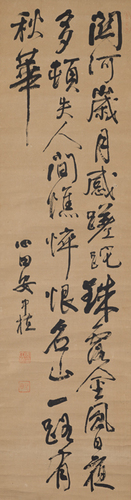 關河歲月感蹉跎珠露金風日夜
多頓失人間憔悴恨名山一路有
秋華
心田安中植